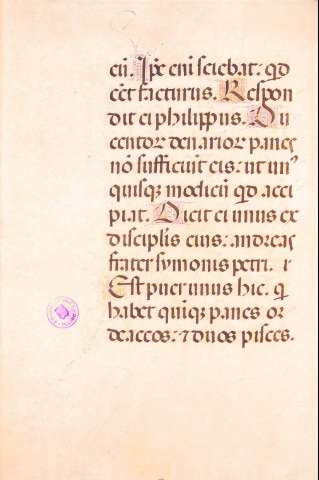 cū. Ip̄e enī sciebat: qd
eēt facturus. Respon
dit ei philippus. Du
centor denarior panes
nō sufficiūt eis: ut unꝰ
quisqꝫ modicū qd acci
piat. Dicit ei unus ex
disciplis eius: andreas
frater symonis petri. ⁊
Est puer unus hic. q̄
habet quīqꝫ panes or
deaceos: ⁊ duos pisces.